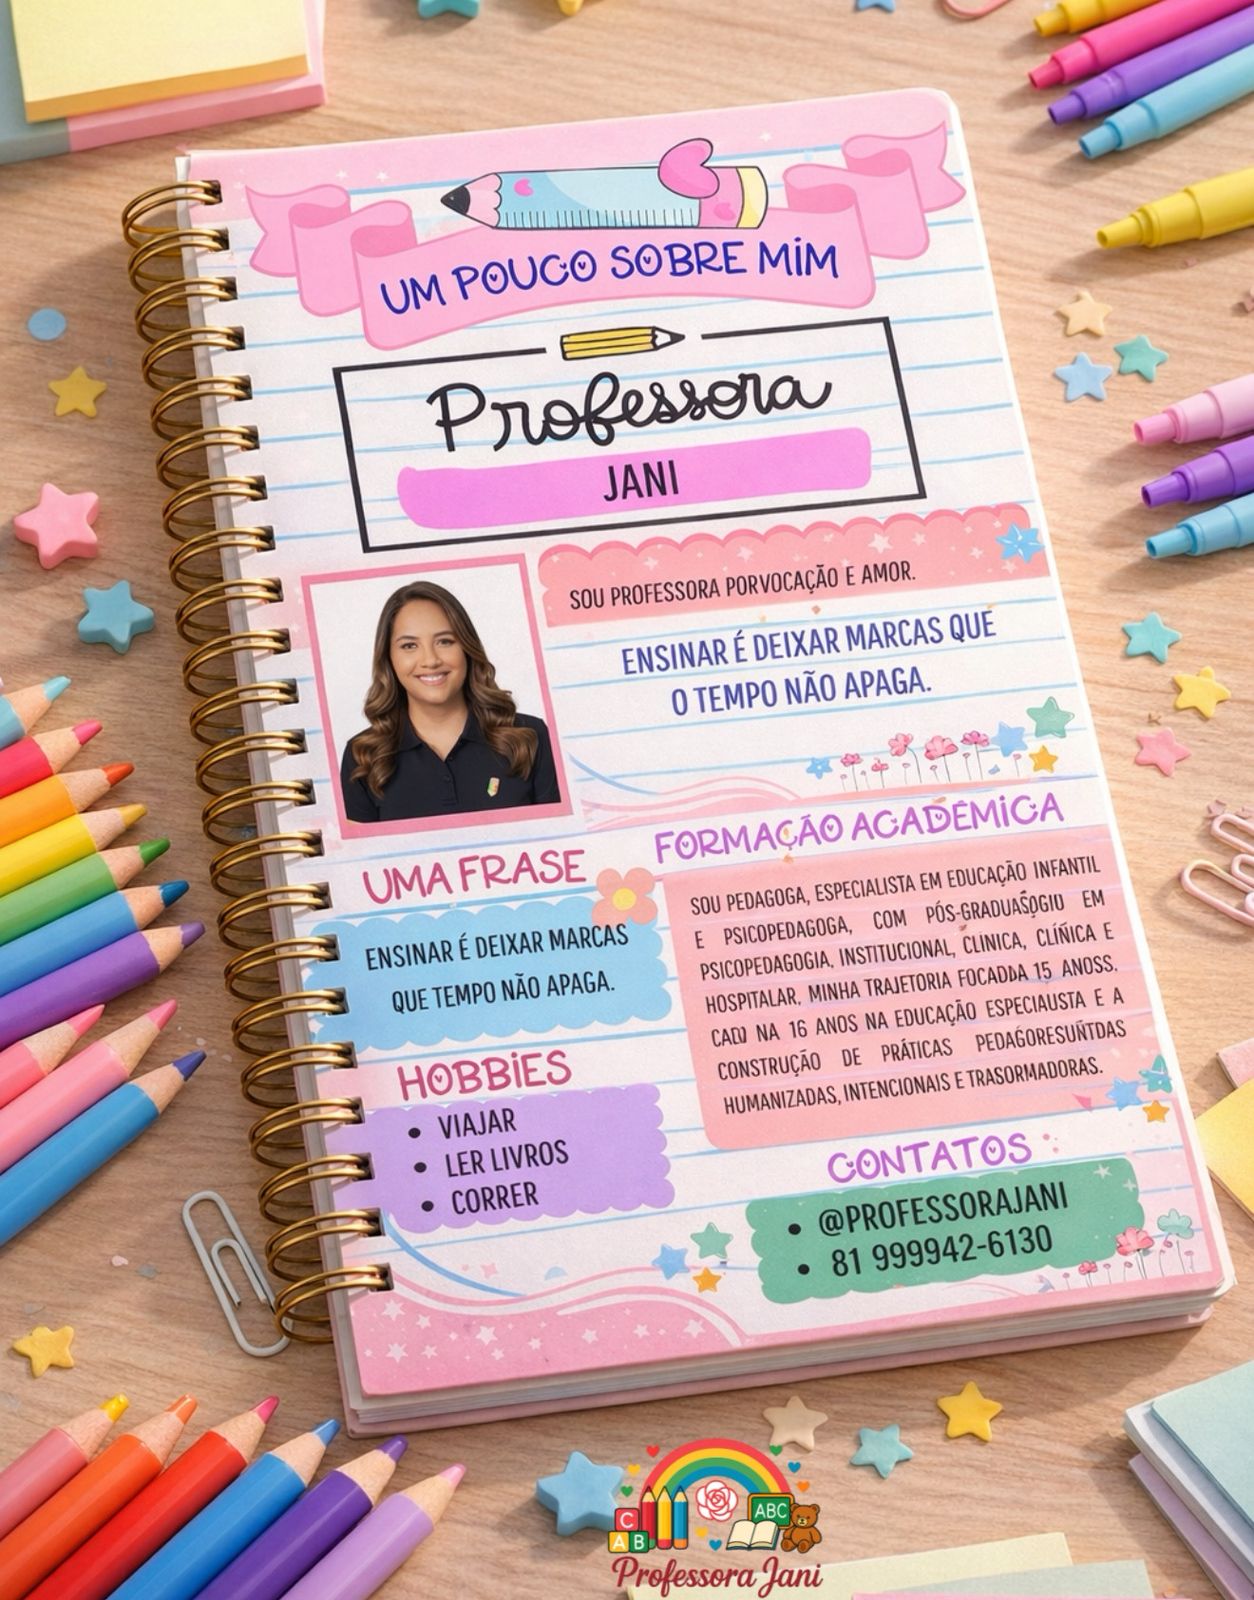 UM POUCO SOBRE MIM
Professora
JANI
SOU PROFESSORA PORVOCAÇÃO E AMOR.
ENSINAR É DEIXAR MARCAS QUE
O TEMPO NÃO APAGA.
UMA FRASE
ENSINAR É DEIXAR MARCAS
QUE TEMPO NÃO APAGA.
HOBBIES
• VIAJAR
• LER LIVROS
• CORRER
FORMAÇÃO ACADÊMICA
SOU PEDAGOGA, ESPECIALISTA EM EDUCAÇÃO INFANTIL
E PSICOPEDAGOGA, COM EM
PSICOPEDAGOGIA, INSTITUCIONAL, CLÍNICA, CLÍÑICA E
HOSPITALAR, MINHA TRAJETORIA FOCADDA 15 ANOSS.
NA 16 ANOS NA EDUCAÇÃO E A
CONSTRUÇÃO DE PRÁTICAS
HUMANIZADAS, INTENCIONAIS E TRASORMADORAS.
CONTATOS
• @PROFESSORAJANI
• 81 999942-6130
C
A B
ABC
Professora Jani